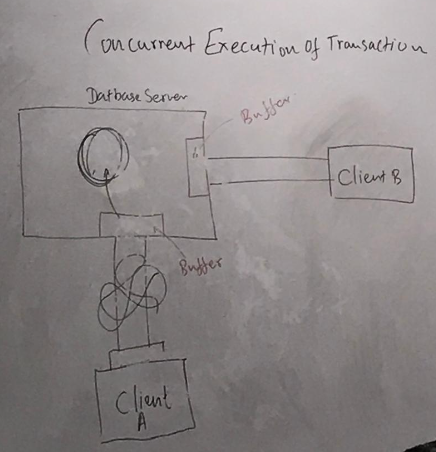 Concurrent Execution of Transaction
Datbase Server
Buffer
Client B
Buffer
Client
A